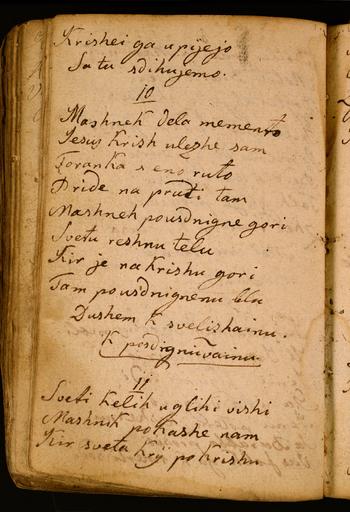 Krishei ga vpijejo
Sa tu sdihujemo.
10
Mashnek dela memento
Jesus Krish vlezhe sam
Foranka s eno ruto
Pride na pruti tam
Mashnek pousdnigne gori
Svetu reshnu telu
Kir je na krishu gori
Tam pousdnignenu blu
Dushem k svelizhainu.
K posdignuvainu.
11
Sveti Kelih vglihi vishi
Mashnik pokashe nam
Kir sveta kry po krishu